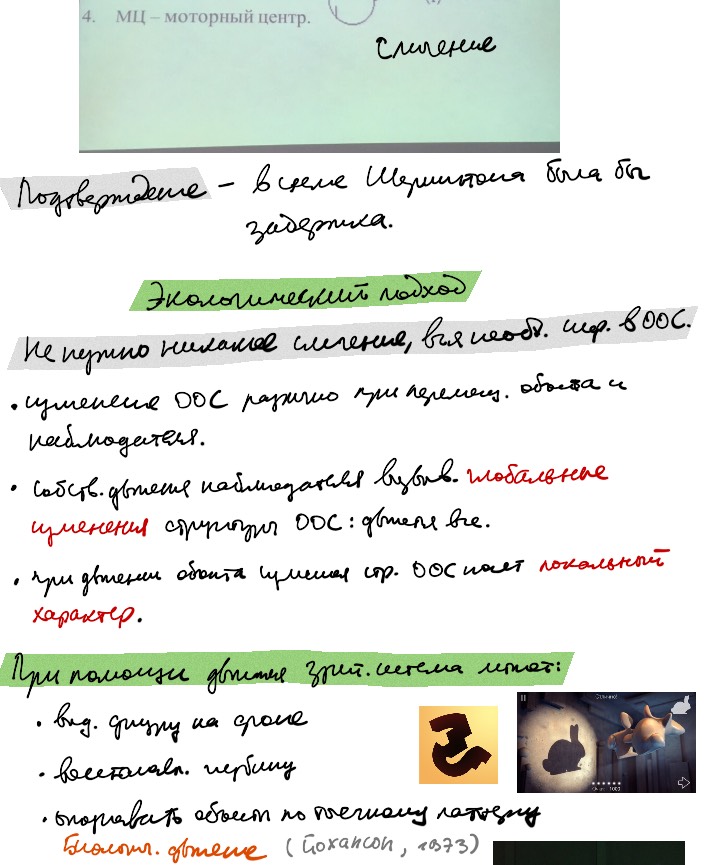 4. МЦ – моторный центр.
Сличение
Подтверждение – в схеме Шеррингтона была бы
задержка.
Экологический подход
Не нужно никакое сличение, вся необх. инф. в ООС.
• изменения ООС различно при перемещ. объекта и
наблюдателя.
• Собств. движения наблюдателя вызыв. глобальные
изменения структуры ООС: движется все.
• при движении объекта изменения стр. ООС носят локальный
характер.
При помощи движения зрит. система может:
• выд. фигуру на фоне
• восстанавл. глубину
• опознавать объект по точечному паттерну
Биологич. движение (Йохансон, 1973)